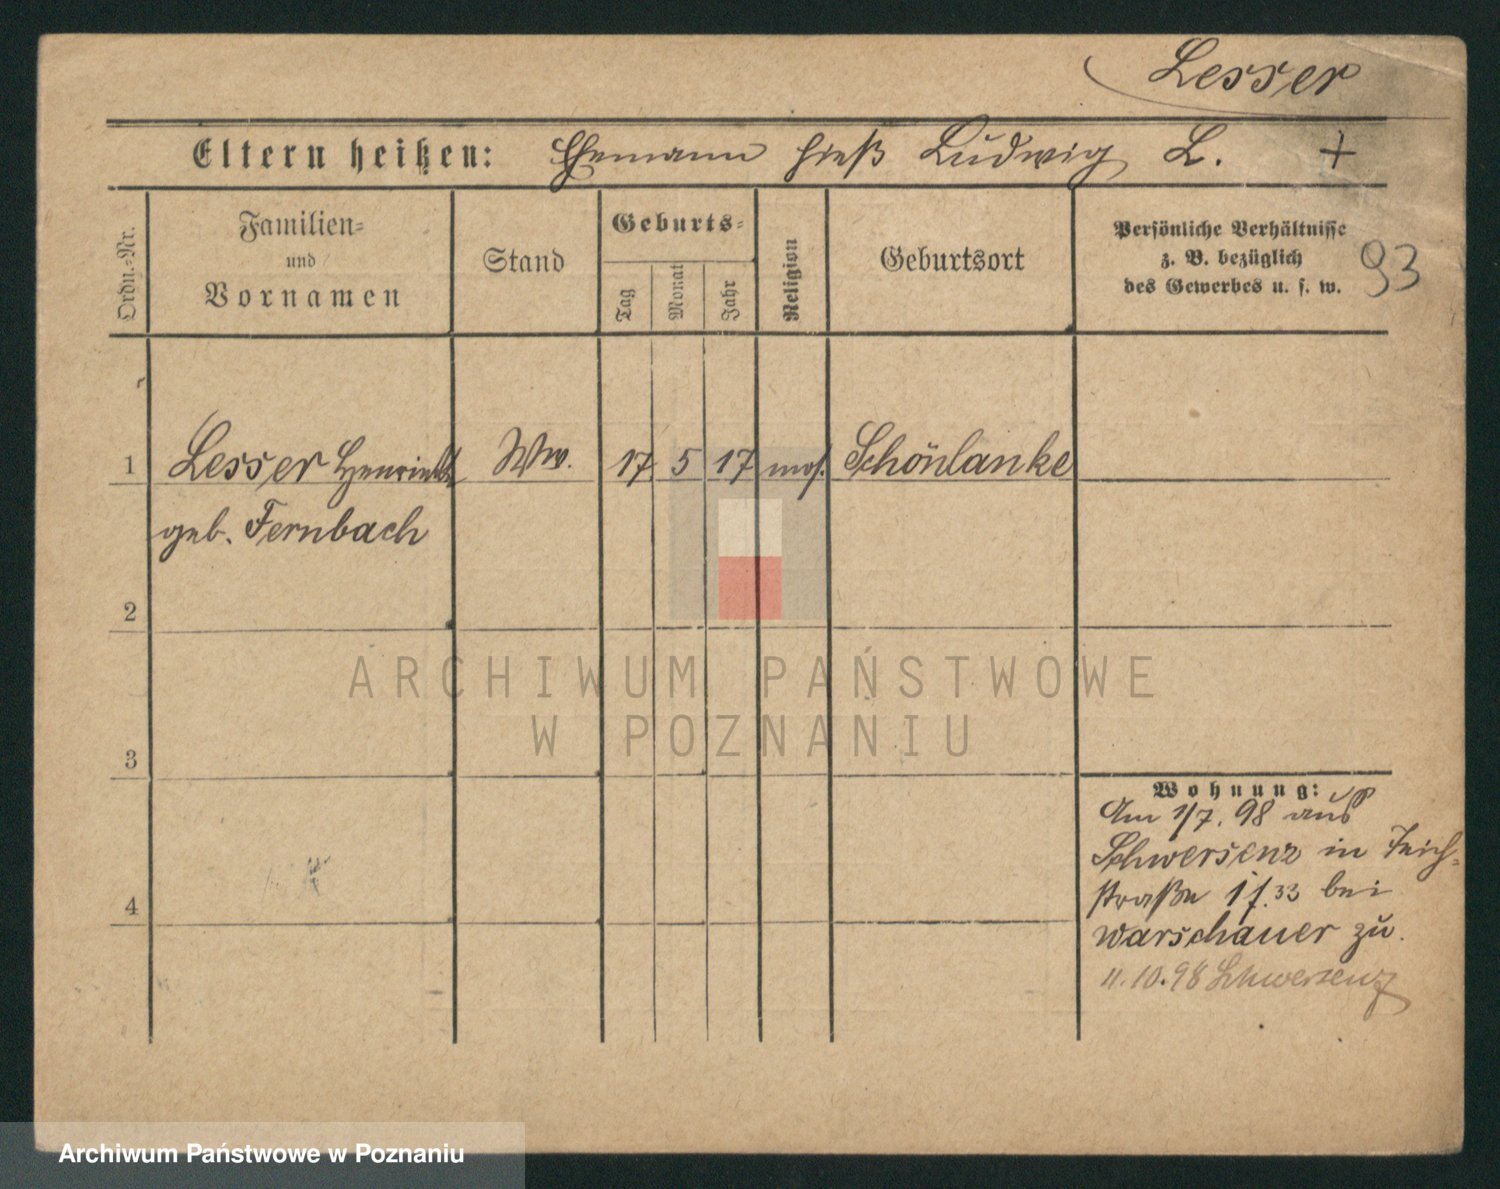 Lesser
Eltern heißen: Ehemann hieß Ludwig L. +
Ordn.-Nr.
Familien-
und
Vornamen
Stand
Geburts-
Tag
Monat
Jahr
Religion
Geburtsort
Persönliche Verhältnisse
z. B. bezüglich
des Gewerbes u. s. w.
93
1 Lesser Henriette Ww. 17 5 17 mos. Schönlanke
geb. Fernbach
2
ARCHIWUM PAŃSTWOWE
W POZNANIU
3
Wohnung:
Am 1/7. 98 aus
Schwersenz in Teich-
straße 1 f. 33 bei
Warschauer zu.
11.10.98 Schwersenz
4
Archiwum Państwowe w Poznaniu